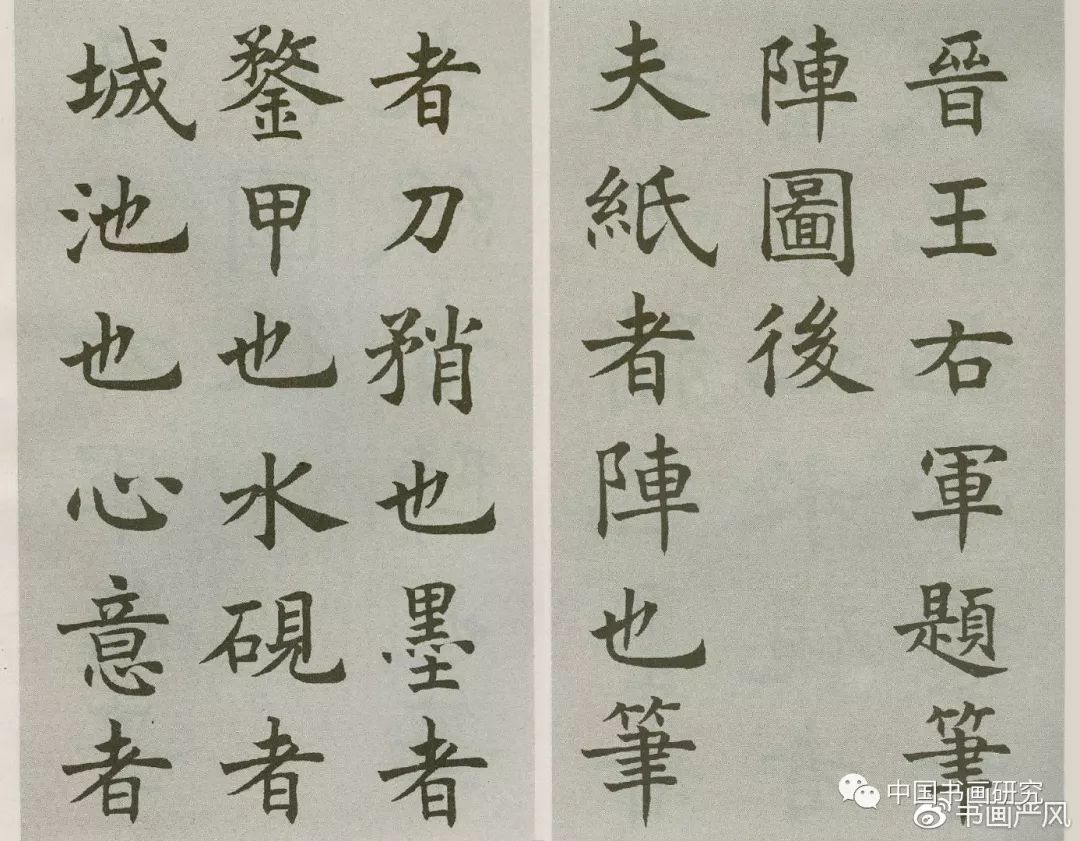 晉王右軍題筆
陣圖後
夫紙者陣也筆
者刀矟也墨者
鍪甲也水硯者
城池也心意者
中国书画研究
书画严风